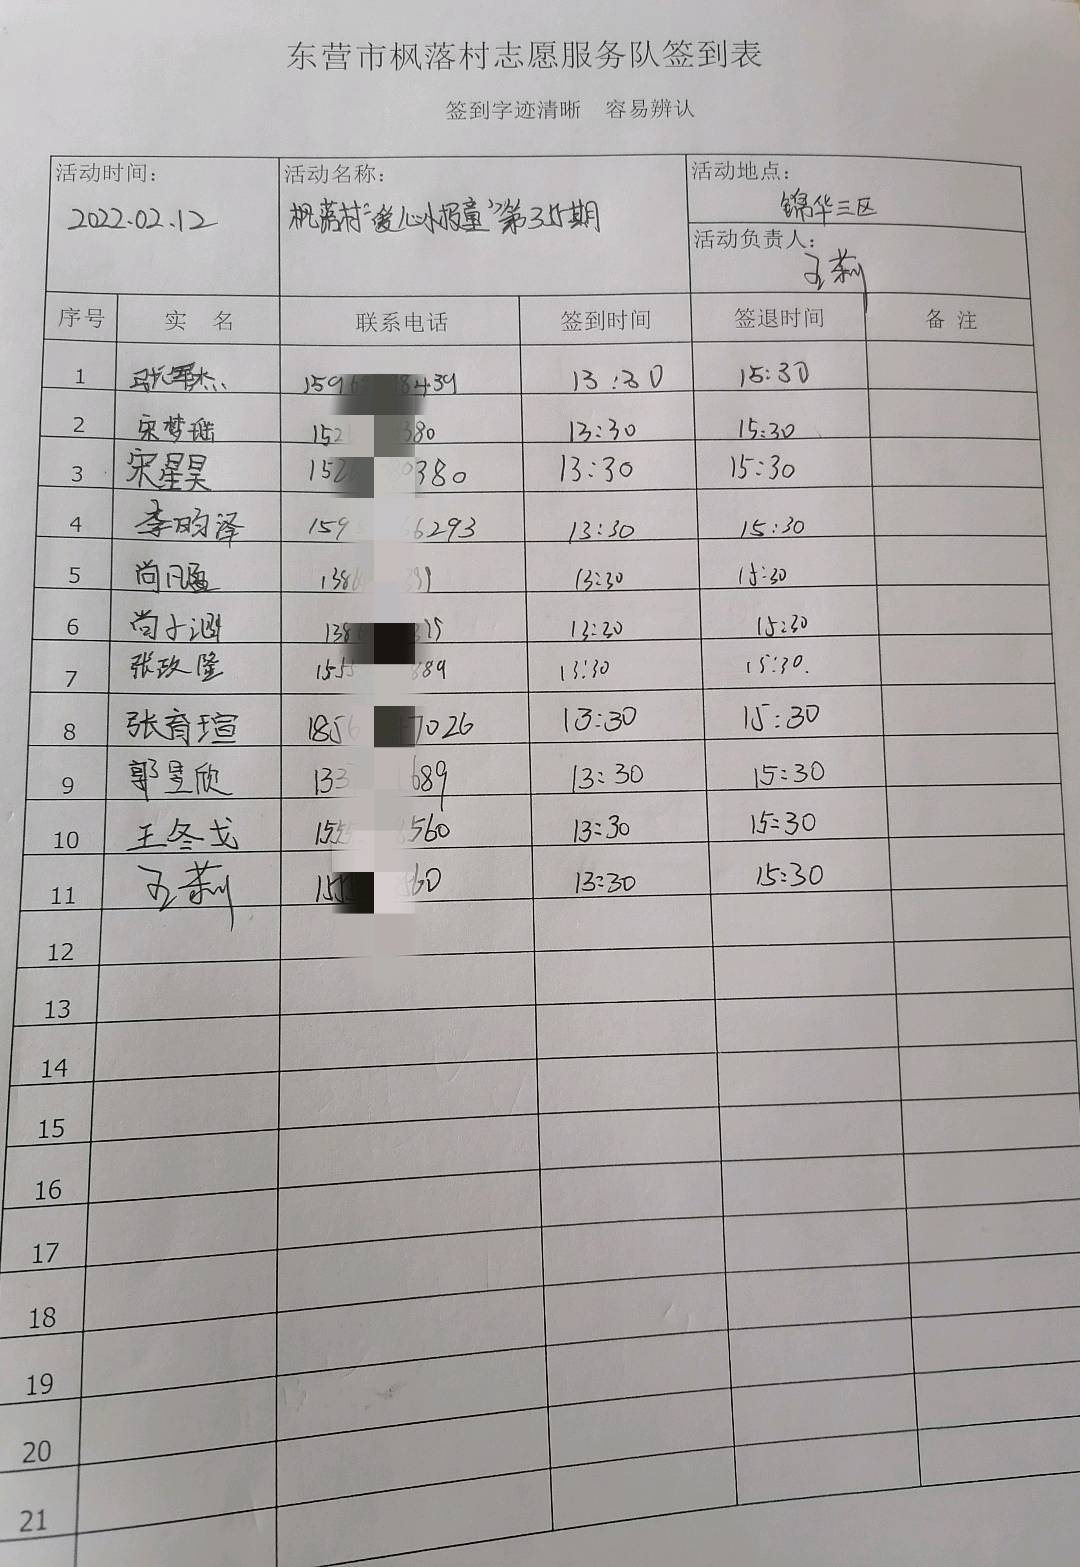 东营市枫落村志愿服务队签到表
签到字迹清晰 容易辨认
活动时间: 活动名称: 活动地点:
2022.02.12 枫落村“爱心小报童”第35期 锦华三区
活动负责人:
王莉
序号 实 名 联系电话 签到时间 签退时间 备 注
1 13:30 15:30
2 宋梦瑶 152 380 13:30 15:30
3 宋星昊 152 0380 13:30 15:30
4 李昀泽 159 6293 13:30 15:30
5 尚 138 399 13:30 15:30
6 尚子涵 138 13:30 15:30
7 张玫隆 1555 889 13:30 15:30.
8 张育瑄 185 7026 13:30 15:30
9 郭昱欣 133 689 13:30 15:30
10 王冬戈 155 560 13:30 15:30
11 王莉 155 560 13:30 15:30
12
13
14
15
16
17
18
19
20
21